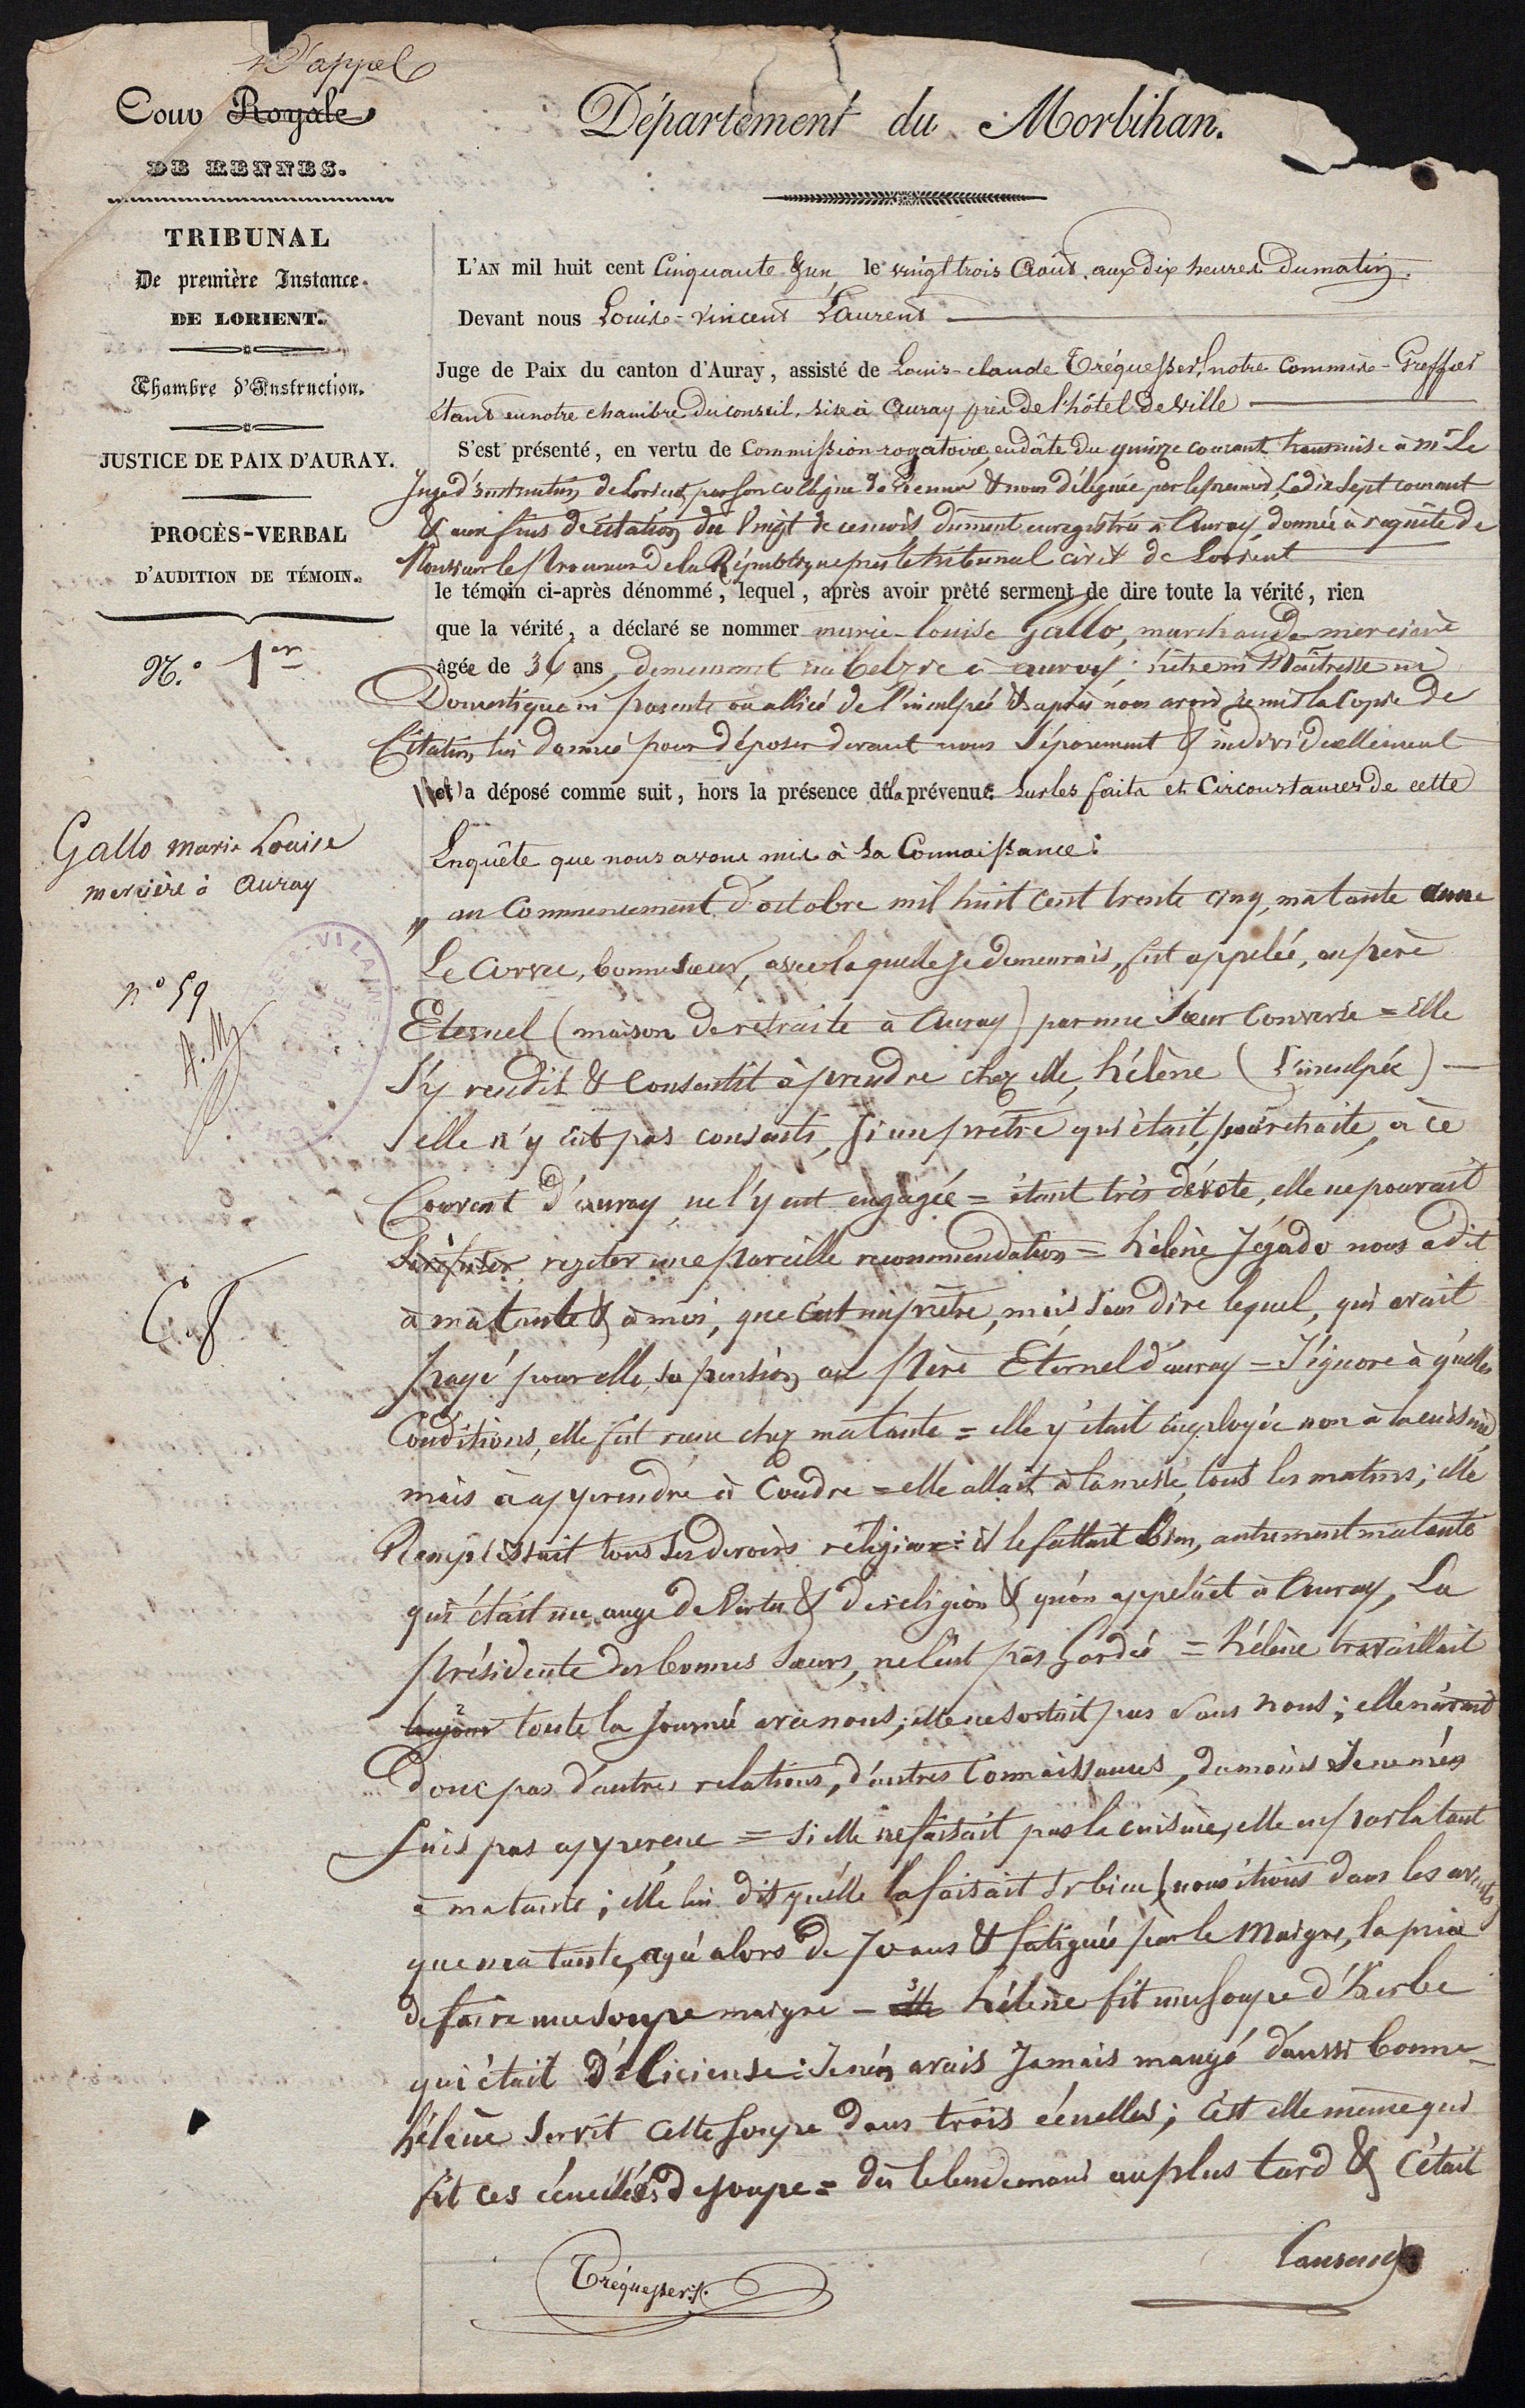 d'appel
Cour Royale
DE RENNES.
Département du Morbihan.
TRIBUNAL
De première Instance.
DE LORIENT.
Chambre d'Instruction.
JUSTICE DE PAIX D'AURAY.
PROCÈS-VERBAL
D'AUDITION DE TÉMOIN.
N.° 1er
Gallo marie Louise
mercière à auray
n° 59
L'AN mil huit cent Cinquante & un, le vingt trois Août, aux dix heures du matin.
Devant nous Louis-Vincent Laurent
Juge de Paix du canton d'Auray, assisté de Louis-claude Tréquesser, notre Commis-Greffier
étant en notre chambre du conseil, sise à auray près de l'hôtel de ville
S'est présenté, en vertu de Commission rogatoire, en date du quinze courant transmise à Mr Le
Juge d'instruction de Lorient, par son collègue de Rennes & nous déléguée par le premier, Le dix Sept courant
& aux fins de citation du Vingt de ce mois dument enregistrée à Auray, donnée à requête de
Monsieur le Procureur de la République près le tribunal civil de Lorient
le témoin ci-après dénommé, lequel, après avoir prêté serment de dire toute la vérité, rien
que la vérité, a déclaré se nommer marie-louise Gallo, marchande mercière
âgée de 36 ans, demeurant rue belzic à auray; n'être ni Maîtresse ni
Domestique ni parente ou alliée de l'inculpée & après nous avoir remis la Copie de
Citation lui donnée pour déposer devant nous Séparement & individuellement
et a déposé comme suit, hors la présence de la prévenue: Sur les faits et Circonstances de cette
Enquête que nous avons mis à sa Connaissance:
" au Commencement d'octobre mil huit Cent trente cinq, ma tante anne
Le Corvec, bonne soeur, avec laquelle je demeurais, fut appelée, au père
Eternel (maison de retraite à Auray) par une Soeur Converse = elle
S'y rendit & Consentit à prendre chez elle, hélène (l'inculpée) —
elle n'y eut pas consenti, Si un prêtre qui était, pour retraite, à ce
Couvent d'auray ne l'y eut engagée = étant très dévote, elle ne pouvait
rejeter une pareille recommendation = hélène Jégado nous a dit
à ma tante & à moi, que c'est un prêtre, mais sans dire lequel, qui avait
payé pour elle, sa pension au Père Eternel d'auray = J'ignore à quelles
Conditions, elle fut reçue chez ma tante = elle y était employée non à la cuisine,
mais à apprendre à Coudre = elle allait à la messe, tous les matins; elle
Remplissait tous ses devoirs religieux: il le fallait bien, autrement ma tante
qui était un ange de Vertu & de religion & qu'on appelait à Auray, La
présidente des bonnes Soeurs, ne l'eut pas gardée = hélène travaillait
toujours toute la journée avec nous; elle ne sortait pas sans nous; elle n'avait
donc pas d'autres relations, d'autres Connaissances, du moins Je ne m'en
suis pas apperçue = Si elle ne faisait pas la cuisine, elle en parla tant
à ma tante; elle lui dit qu'elle la faisait si bien (nous étions dans les avents)
que ma tante, agée alors de 70 ans & fatiguée par le Maigre, la pria
de faire une soupe maigre — elle hélène fit une soupe d'herbe
qui était Délicieuse: Je n'en avais Jamais mangé d'aussi bonne —
hélène servit cette Soupe dans trois écuelles; c'est elle même qui
fit ces écuellées de soupe = dès le lendemain au plus tard & c'était
Tréquesser
Laurent